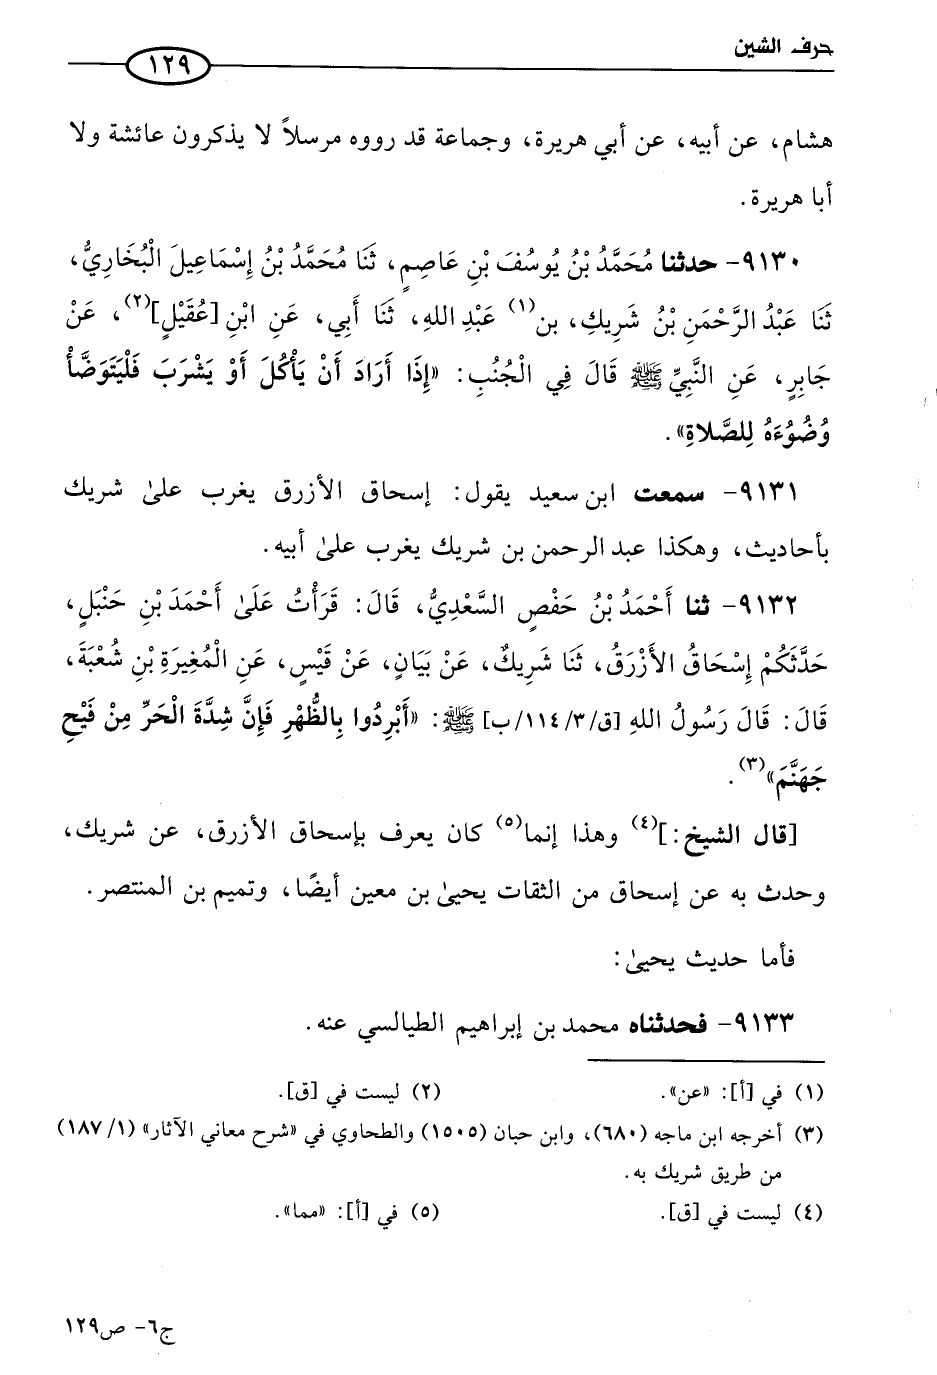 حرف الشين
١٢٩
هشام، عن أبيه، عن أبي هريرة، وجماعة قد رووه مرسلاً لا يذكرون عائشة ولا
أبا هريرة.
٩١٣٠- حدثنا مُحَمَّدُ بْنُ يُوسُفَ بْنِ عَاصِمٍ، ثَنَا مُحَمَّدُ بْنُ إِسْمَاعِيلَ الْبُخَارِيُّ،
ثَنَا عَبْدُ الرَّحْمَنِ بْنُ شَرِيكِ، بن(١) عَبْدِ اللهِ، ثَنَا أَبِي، عَنِ ابْنِ [عُقَيْلٍ](٢)، عَنْ
جَابِرٍ، عَنِ النَّبِيِّ ﷺ قَالَ فِي الْجُنُبِ: «إِذَا أَرَادَ أَنْ يَأْكُلَ أَوْ يَشْرَبَ فَلْيَتَوَضَّأْ
وُضُوُءَهُ لِلصَّلاةِ».
٩١٣١- سمعت ابن سعيد يقول: إسحاق الأزرق يغرب علىٰ شريك
بأحاديث، وهكذا عبد الرحمن بن شريك يغرب علىٰ أبيه.
٩١٣٢- ثنا أَحْمَدُ بْنُ حَفْصٍ السَّعْدِيُّ، قَالَ: قَرَأْتُ عَلَىٰ أَحْمَدَ بْنِ حَنْبَلٍ،
حَدَّثَكُمْ إِسْحَاقُ الأَزْرَقُ، ثَنَا شَرِيكٌ، عَنْ بَيَانٍ، عَنْ قَيْسٍ، عَنِ الْمُغِيرَةِ بْنِ شُعْبَةَ،
قَالَ: قَالَ رَسُولُ اللهِ [ق/٣/١١٤/ب] ﷺ: «أَبْرِدُوا بِالظُّهْرِ فَإِنَّ شِدَّةَ الْحَرِّ مِنْ فَيْحِ
جَهَنَّمَ»(٣).
[قال الشيخ:](٤) وهذا إنما(٥) كان يعرف بإسحاق الأزرق، عن شريك،
وحدث به عن إسحاق من الثقات يحيىٰ بن معين أيضًا، وتميم بن المنتصر.
فأما حديث يحيىٰ:
٩١٣٣- فحدثناه محمد بن إبراهيم الطيالسي عنه.
(١) في [أ]: «عن». (٢) ليست في [ق].
(٣) أخرجه ابن ماجه (٦٨٠)، وابن حبان (١٥٠٥) والطحاوي في «شرح معاني الآثار» (١/ ١٨٧)
من طريق شريك به.
(٤) ليست في [ق]. (٥) في [أ]: «مما».
ج٦- ص١٢٩